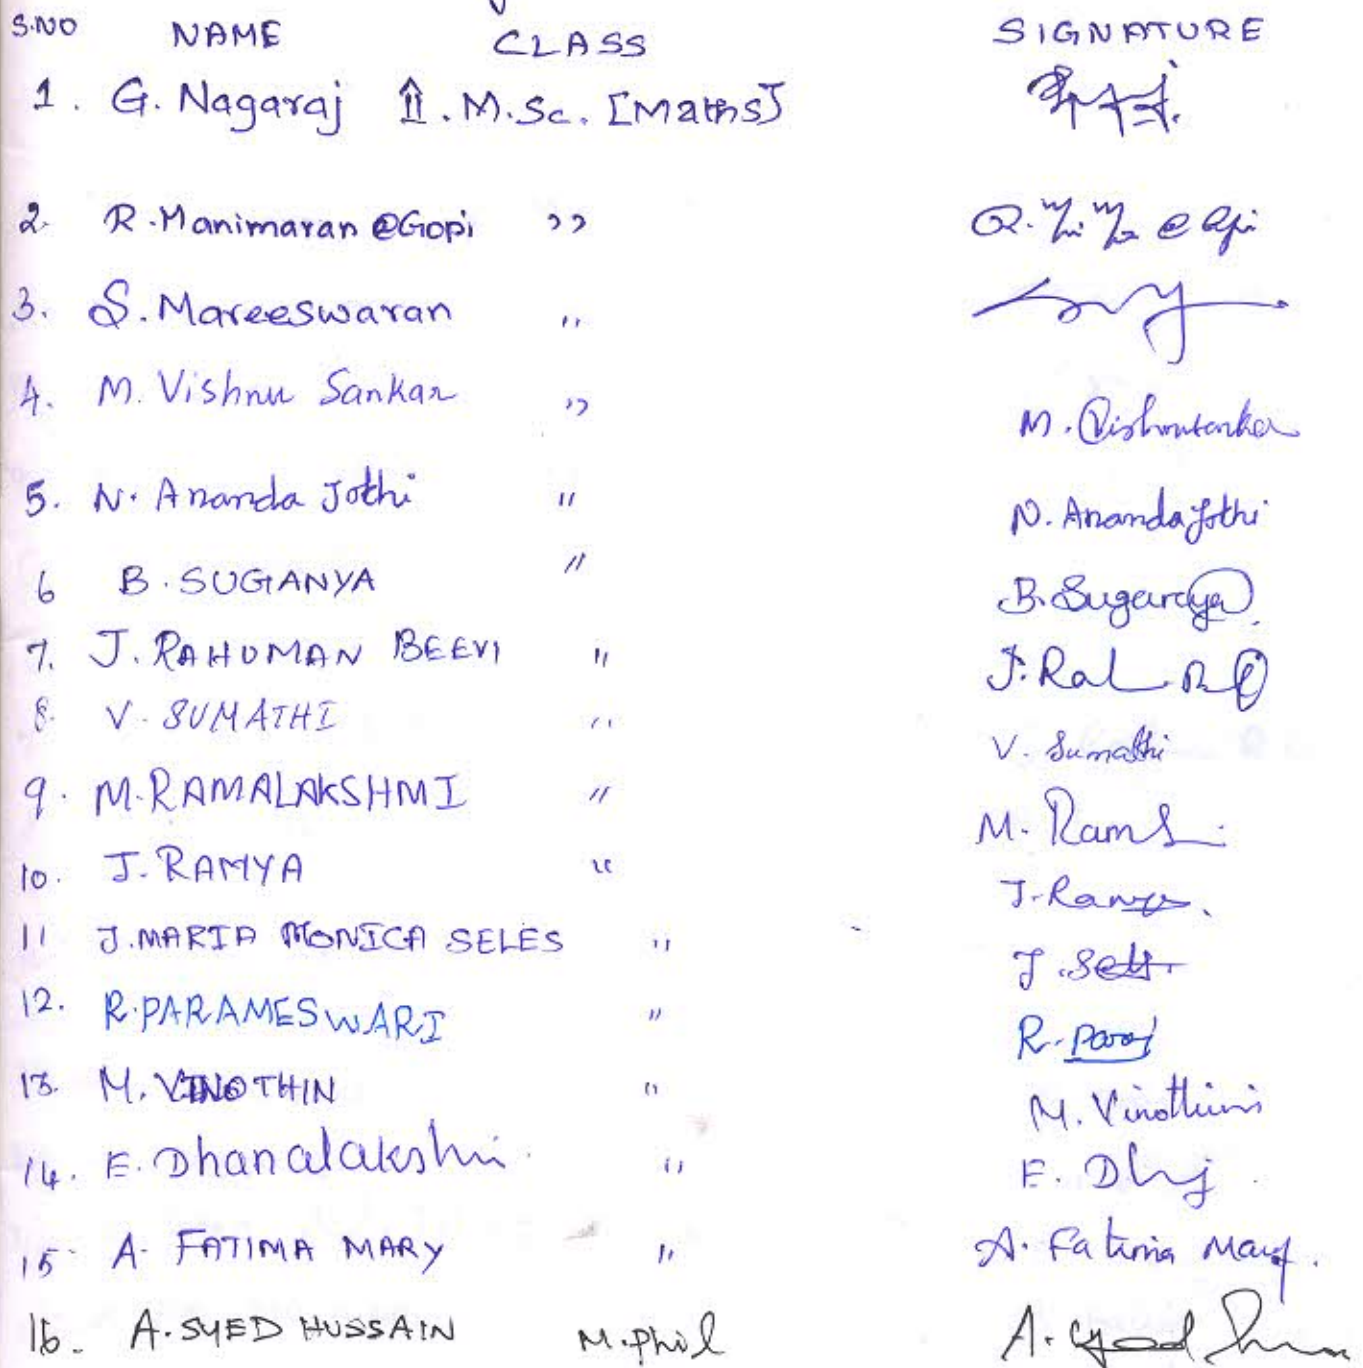 S.NO NAME CLASS SIGNATURE
1. G. Nagaraj II. M.Sc. [Maths]
2. R. Manimaran @Gopi ,, R. @ Gopi
3. S. Mareeswaran ,,
4. M. Vishnu Sankar ,, M. Vishnusankar
5. N. Ananda Jothi " N. Anandajothi
6 B. SUGANYA " B. Suganya
7. J. RAHUMAN BEEVI " J. Rah
8. V. SUMATHI " V. Sumathi
9. M. RAMALAKSHMI " M. Ram
10. J. RAMYA " J. Ramya
11 J. MARIA MONICA SELES " J. Sels
12. R. PARAMESWARI " R.
13. M. VINOTHIN " M. Vinothini
14. E. Dhanalakshmi " E.
15 A. FATIMA MARY " A. Fatima Mary.
16. A. SYED HUSSAIN M.Phil A. Syed